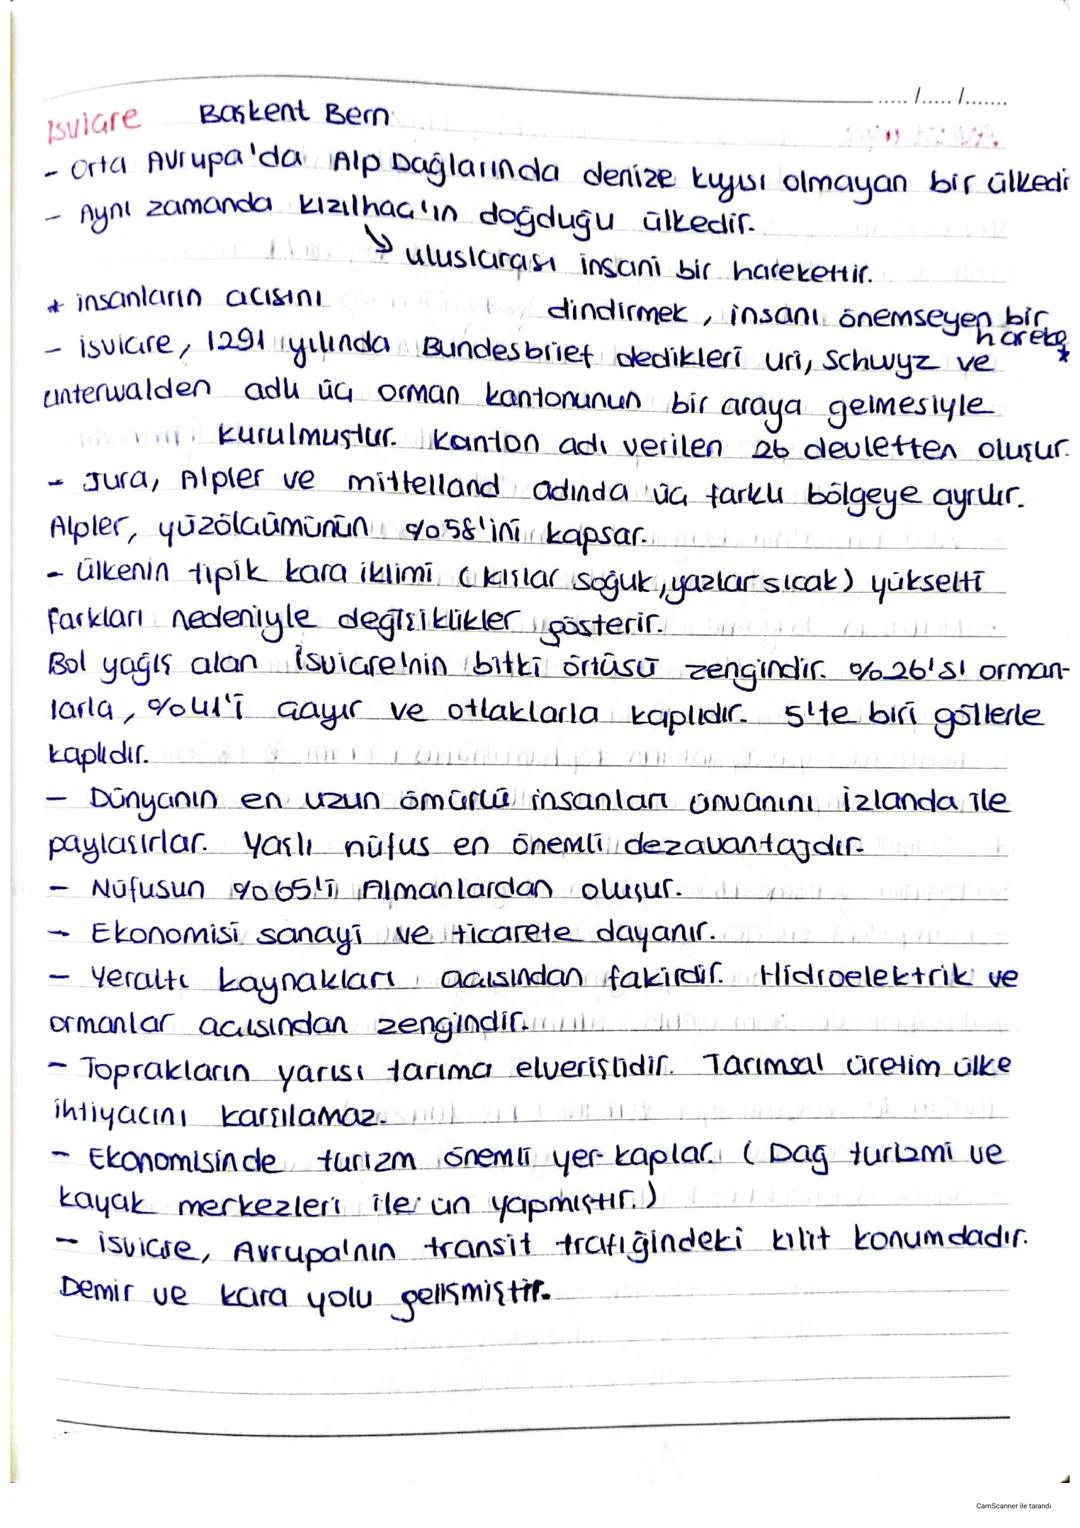 ..... /..... /.......
İsviçre Başkent Bern
- Orta Avrupa'da Alp Dağlarında denize kıyısı olmayan bir ülkedi
- Aynı zamanda kızılhaç'ın doğduğu ülkedir.
↳ uluslarası insani bir harekettir.
* insanların acısını dindirmek, insanı önemseyen bir hareke *
- isviçre, 1291 yılında Bundesbrief dedikleri uri, Schwyz ve
unterwalden adlı üç orman kantonunun bir araya gelmesiyle
kurulmuştur. kanton adı verilen 26 devletten oluşur.
- Jura, Alpler ve mittelland adında üç farklı bölgeye ayrılır.
Alpler, yüzölçümünün %58'ini kapsar.
- ülkenin tipik kara iklimi (kışlar soğuk, yazlar sıcak) yükselti
farkları nedeniyle değişiklikler gösterir.
Bol yağış alan isviçre'nin bitki örtüsü zengindir. %26'sı orman-
larla, %41'i çayır ve otlaklarla kaplıdır. 5'te biri göllerle
kaplıdır.
- Dünyanın en uzun ömürlü insanları ünvanını izlanda ile
paylaşırlar. Yaşlı nüfus en önemli dezavantajdır.
- Nüfusun %65'i Almanlardan oluşur.
- Ekonomisi sanayi ve ticarete dayanır.
- Yeraltı kaynakları açısından fakirdir. Hidroelektrik ve
ormanlar açısından zengindir.
- Toprakların yarısı tarıma elverişlidir. Tarımsal üretim ülke
ihtiyacını karşılamaz.
- Ekonomisinde turizm önemli yer kaplar. (Dağ turizmi ve
kayak merkezleri ile ün yapmıştır.)
- isviçre, Avrupa'nın transit trafiğindeki kilit konumdadır.
Demir ve kara yolu gelişmiştir.
CamScanner ile tarandı